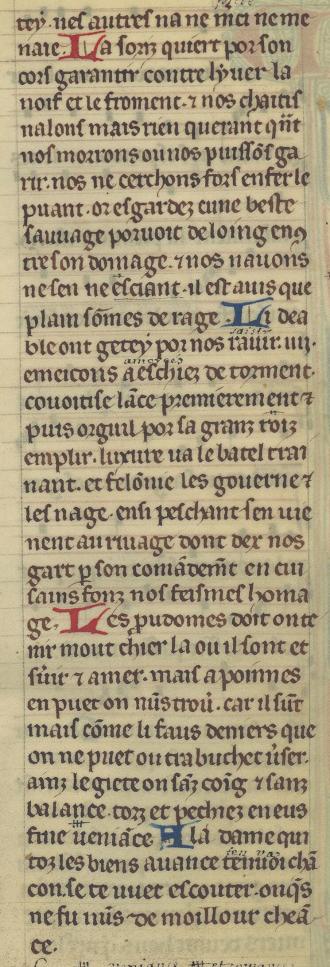 tey. nes autres na ne mci ne me
naie. La formi quiert por son
cors garantir contre lyuer la
noif et le froment. ⁊ nos chaitis
nalons mais rien querant qn̄t
nos morrons ou nos puissōs ga
rir. nos ne cerchons fors enfer le
puant. or esgardez cune beste
sauuage poruoit de loing en9
tre son domage. ⁊ nos nauons
ne sen ne esciant. il est auis que
plain sōmes de rage Li dea
ble ont getey por nos rauir. iiij.
emeicons aeschiez de torment.
couoitise lāce premierement ⁊
puis orguil por sa granz roiz
emplir. luxure ua le batel trai
nant. et felōnie les gouerne ⁊
les nage. ensi peschant sen vie
nent au riuage dont dex nos
gart p̲ son comādemt̄ en cui
sains fonz nos feismes homa
ge. Les pudomes doit on te
nir mout chier la ou il sont et
s'uir ⁊ amer. mais a poinnes
en puet on nūs trou'. car il sūt
mais cōme li faus deniers que
on ne puet ou trabuchet u'ser.
ainz le giete on sāz coīg ⁊ sanz
balance. torz et pechiez en eus
fine ueniāce A la dame qui
toz les biens auance chā
con. se te vuet escouter. onq̄s
ne fu nūs de moillour cheā
ce.